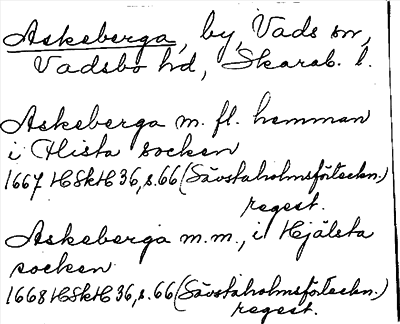 Askeberga, by, Vads sn,
Vadsbo hd, Skarab. l.
Askeberga m. fl. hemman
i Hista socken
1667 HSkH 36, s. 66 (Sävstaholmsförteckn.)
regest.
Askeberga m.m., i Hjälsta
socken
1668 HSkH 36, s. 66 (Sävstaholmsförteckn.)
regest.